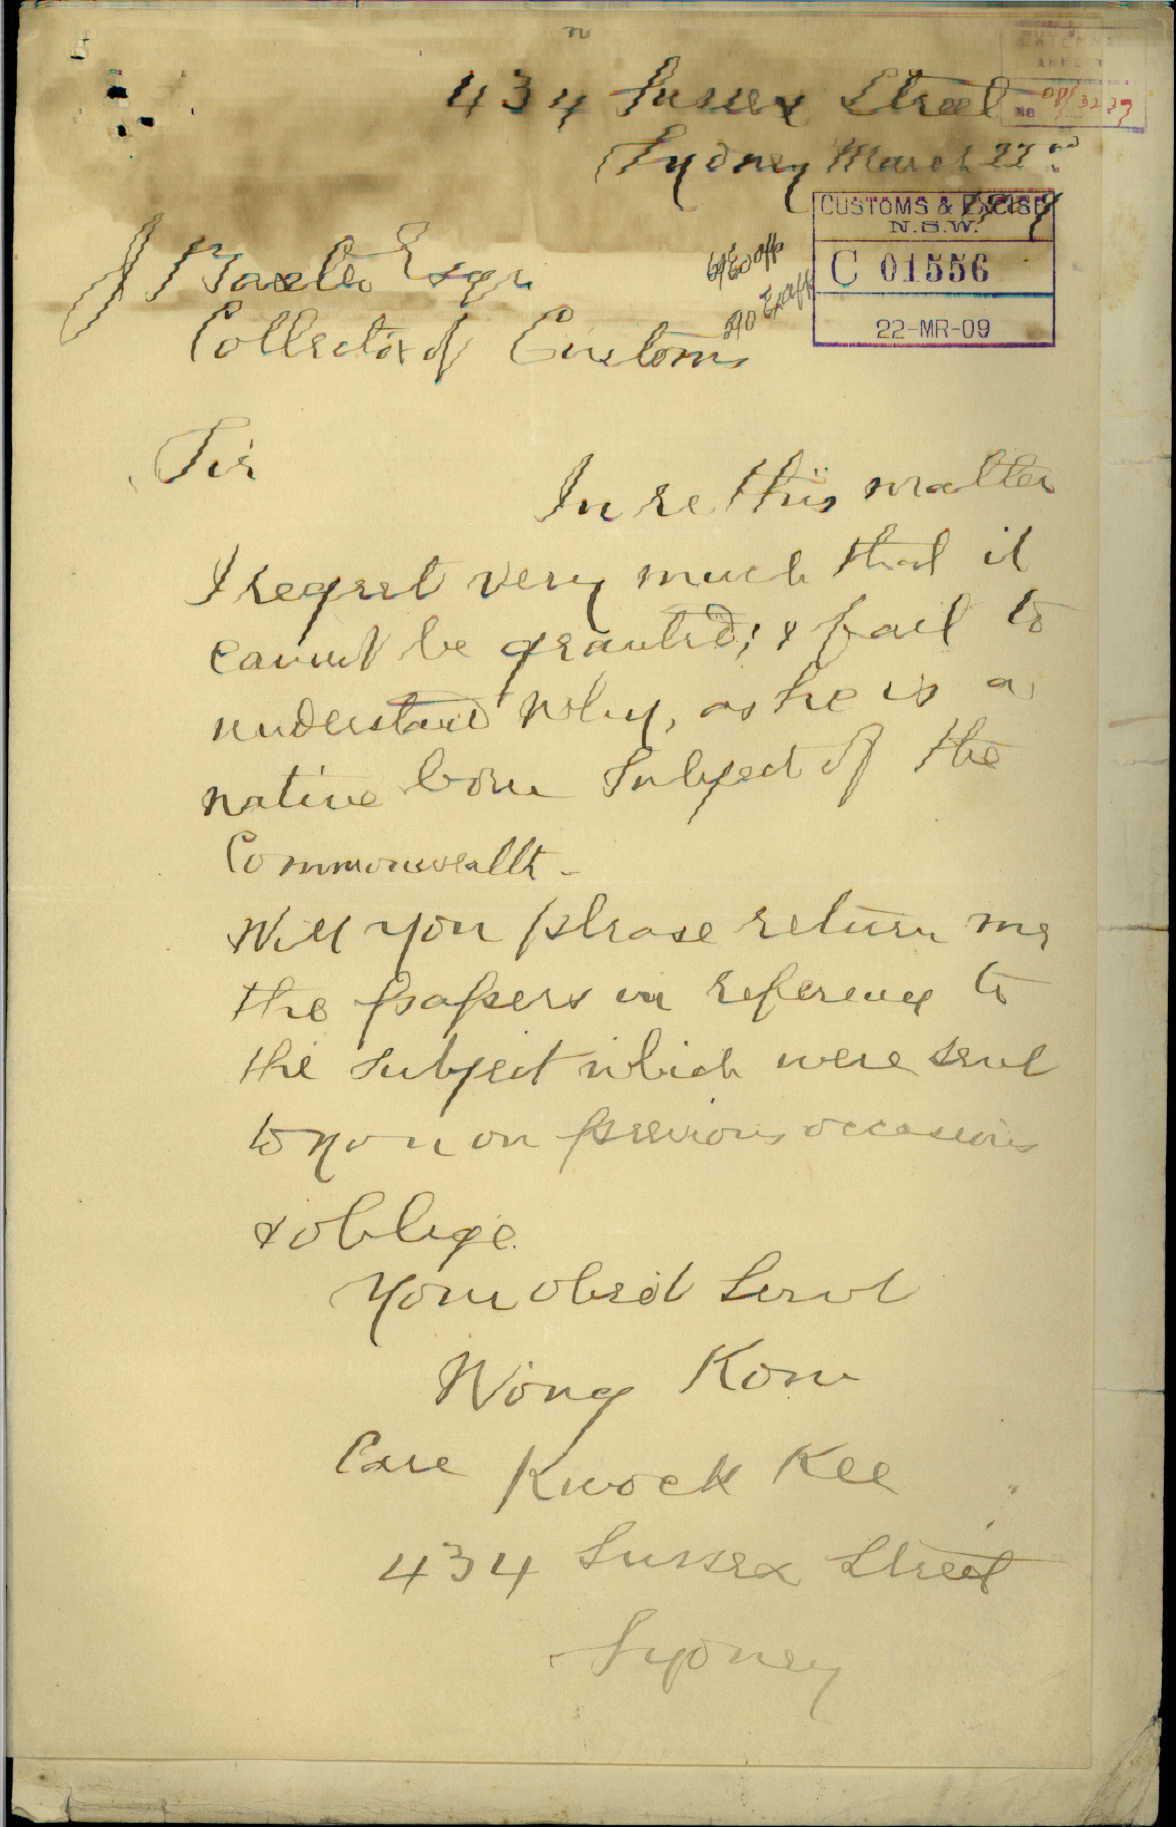 434 Sussex Street
No 09/3229
Sydney March 22nd
1909
CUSTOMS & EXCISE
N.S.W.
C 01556
22-MR-09
J Baxter Esqr
Collector of Customs
Sir
In re this matter
I regret very much that it
cannot be granted; & fail to
understand why, as he is a
native born Subject of the
Commonwealth -
Will you please return me
the papers in reference to
the subject which were sent
to you on previous occasions
& oblige.
Your obedt Servt
Wong Kow
Care Kwock Kee
434 Sussex Street
Sydney